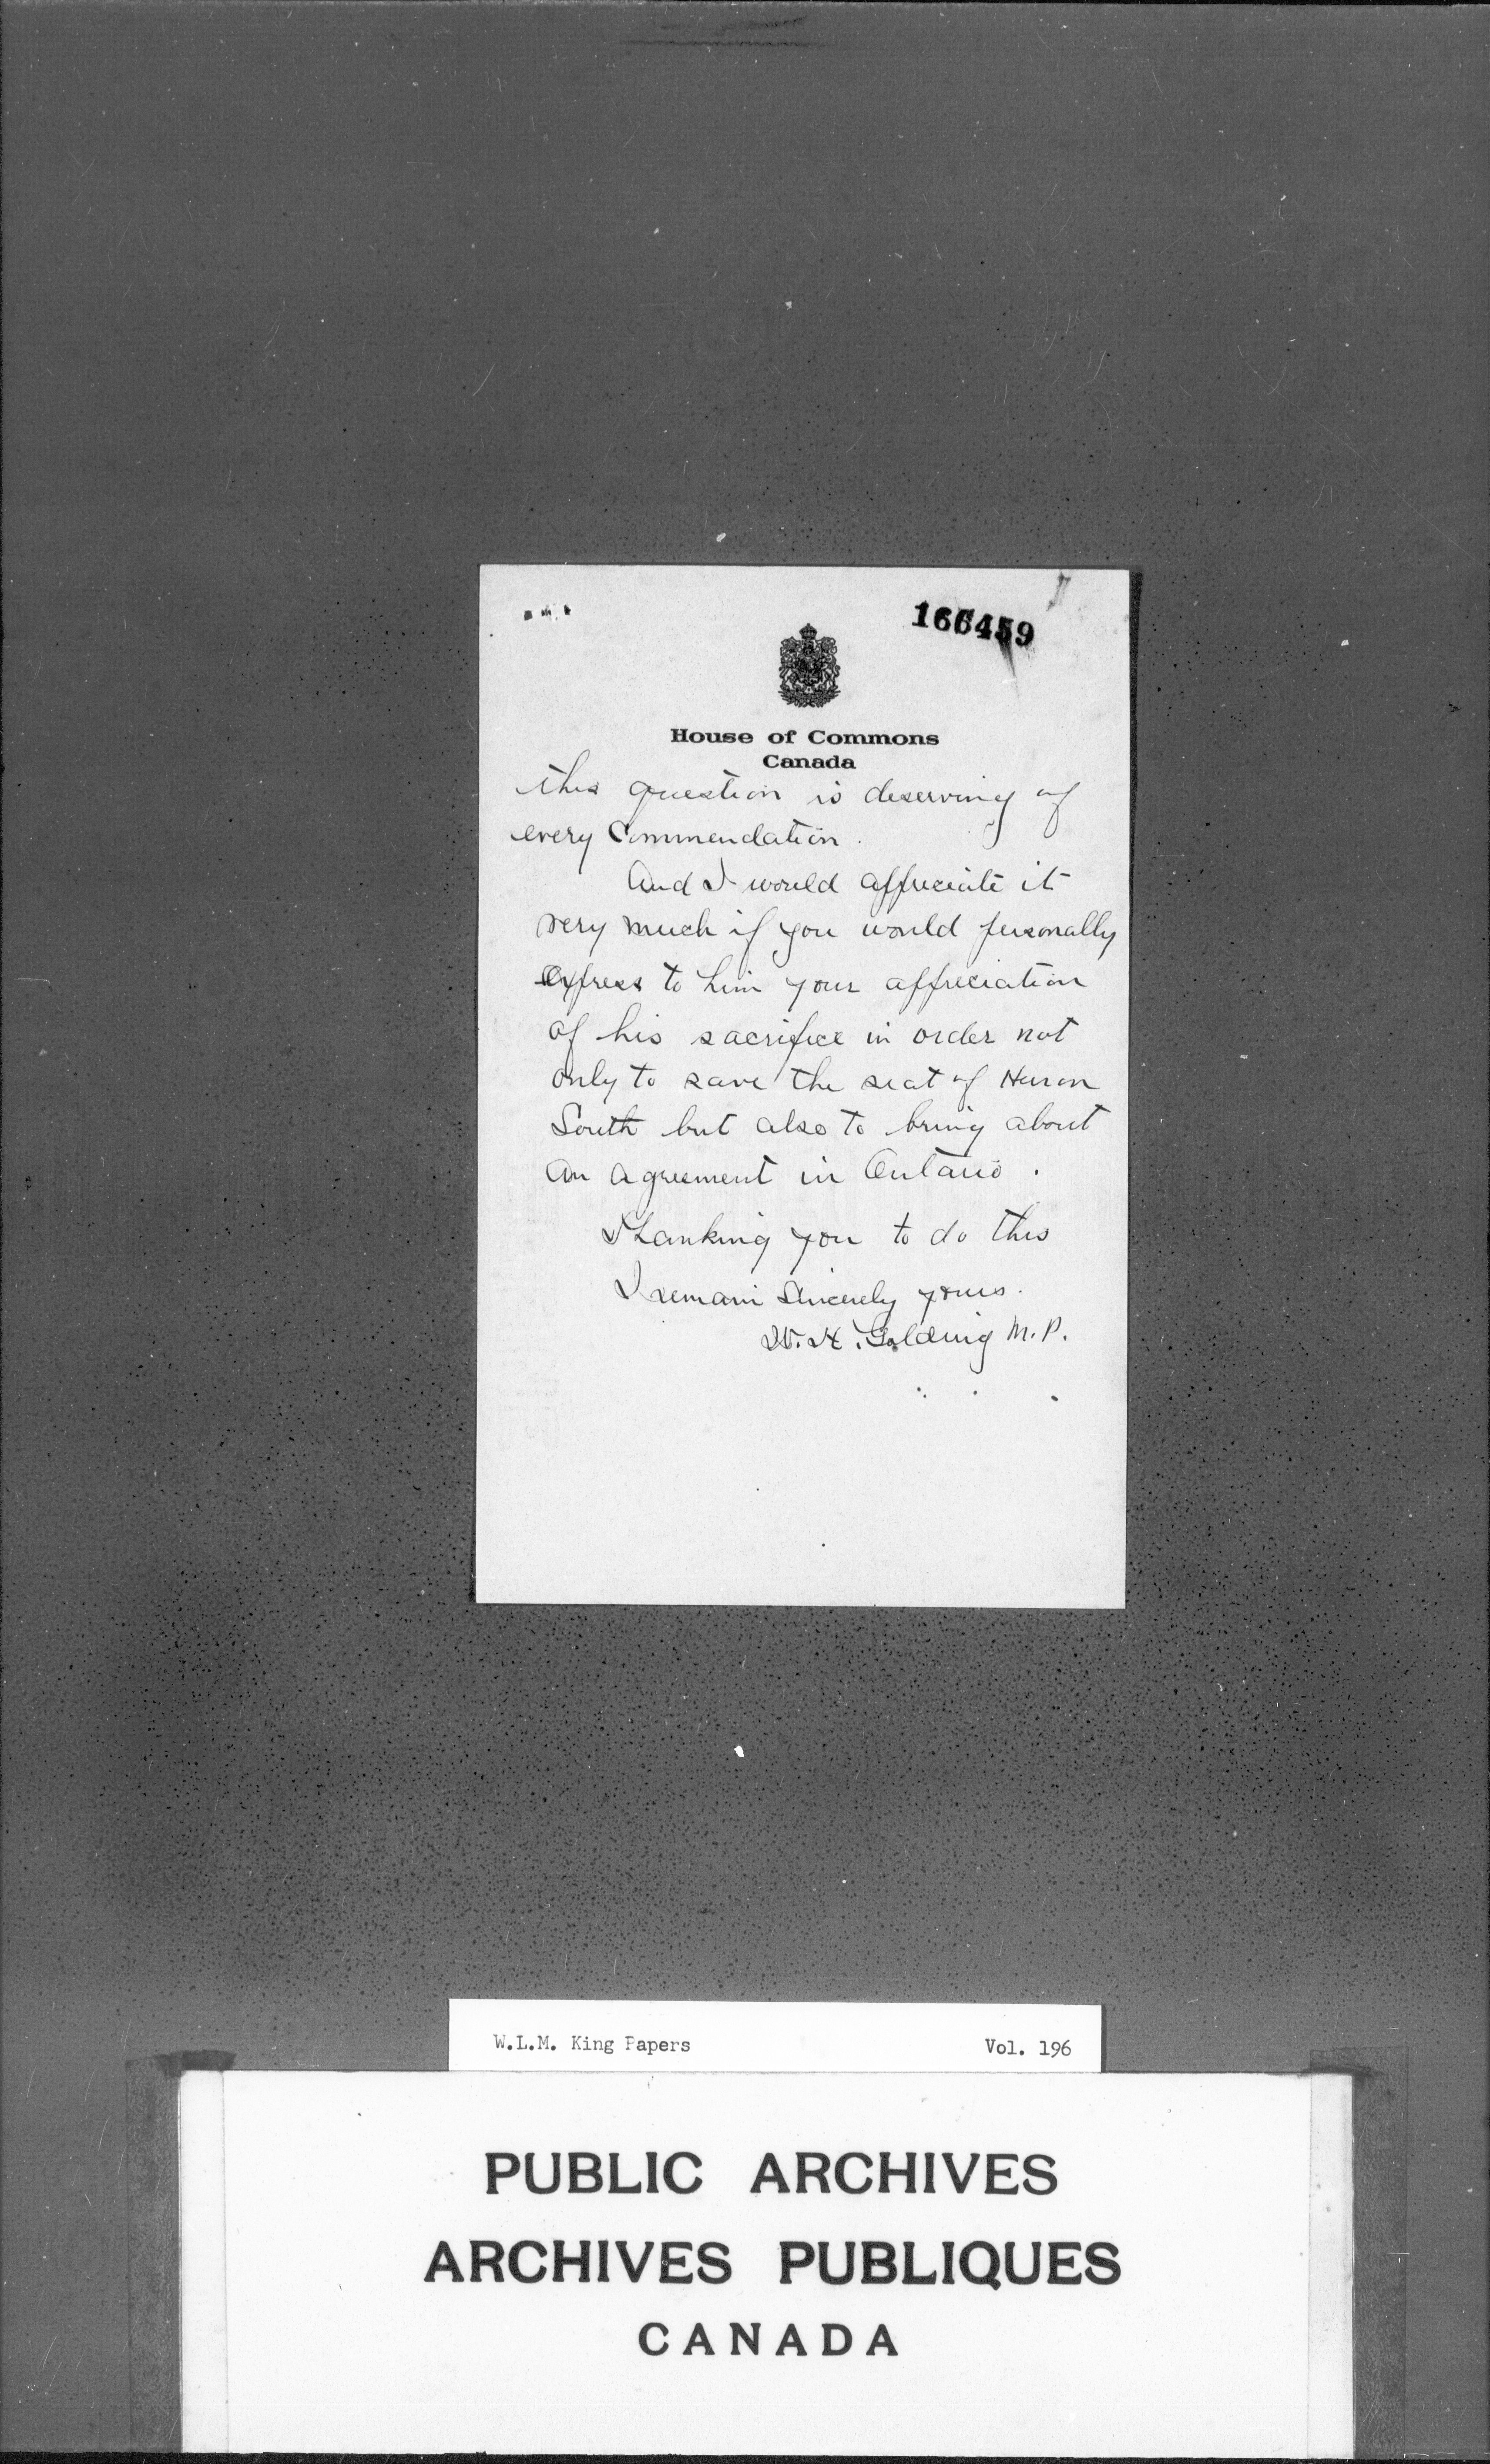 166459
House of Commons
Canada
this question is deserving of
every Commendation.
And I would appreciate it
very much if you would personally
express to him your appreciation
of his sacrifice in order not
only to save the seat of Huron
South but also to bring about
an agreement in Ontario.
Thanking you to do this
I remain Sincerely yours.
W. H. Golding M.P.
W.L.M. King Papers Vol. 196
PUBLIC ARCHIVES
ARCHIVES PUBLIQUES
CANADA